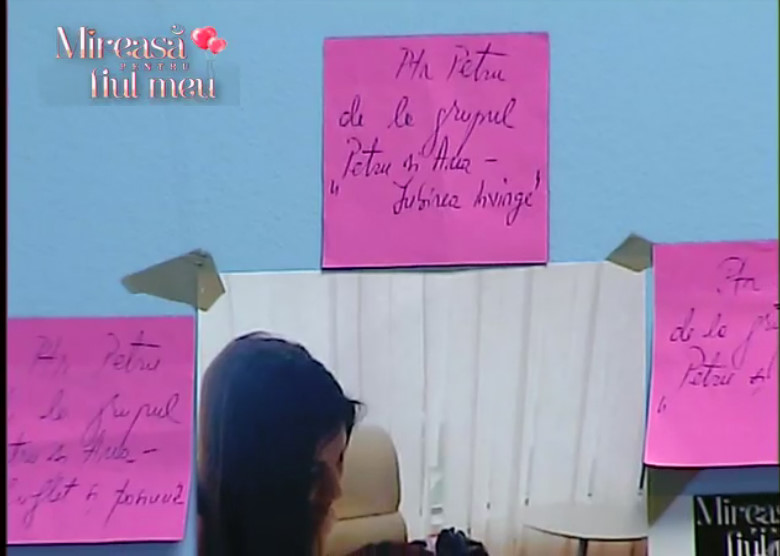 Mireasă
PENTRU
fiul meu
Ptr Petru
de la grupul
Petru și Ana –
"Iubirea învinge"
Ptr Petru
la grupul
Ana –
Ptr
de la
Petru
Mireas
fiul